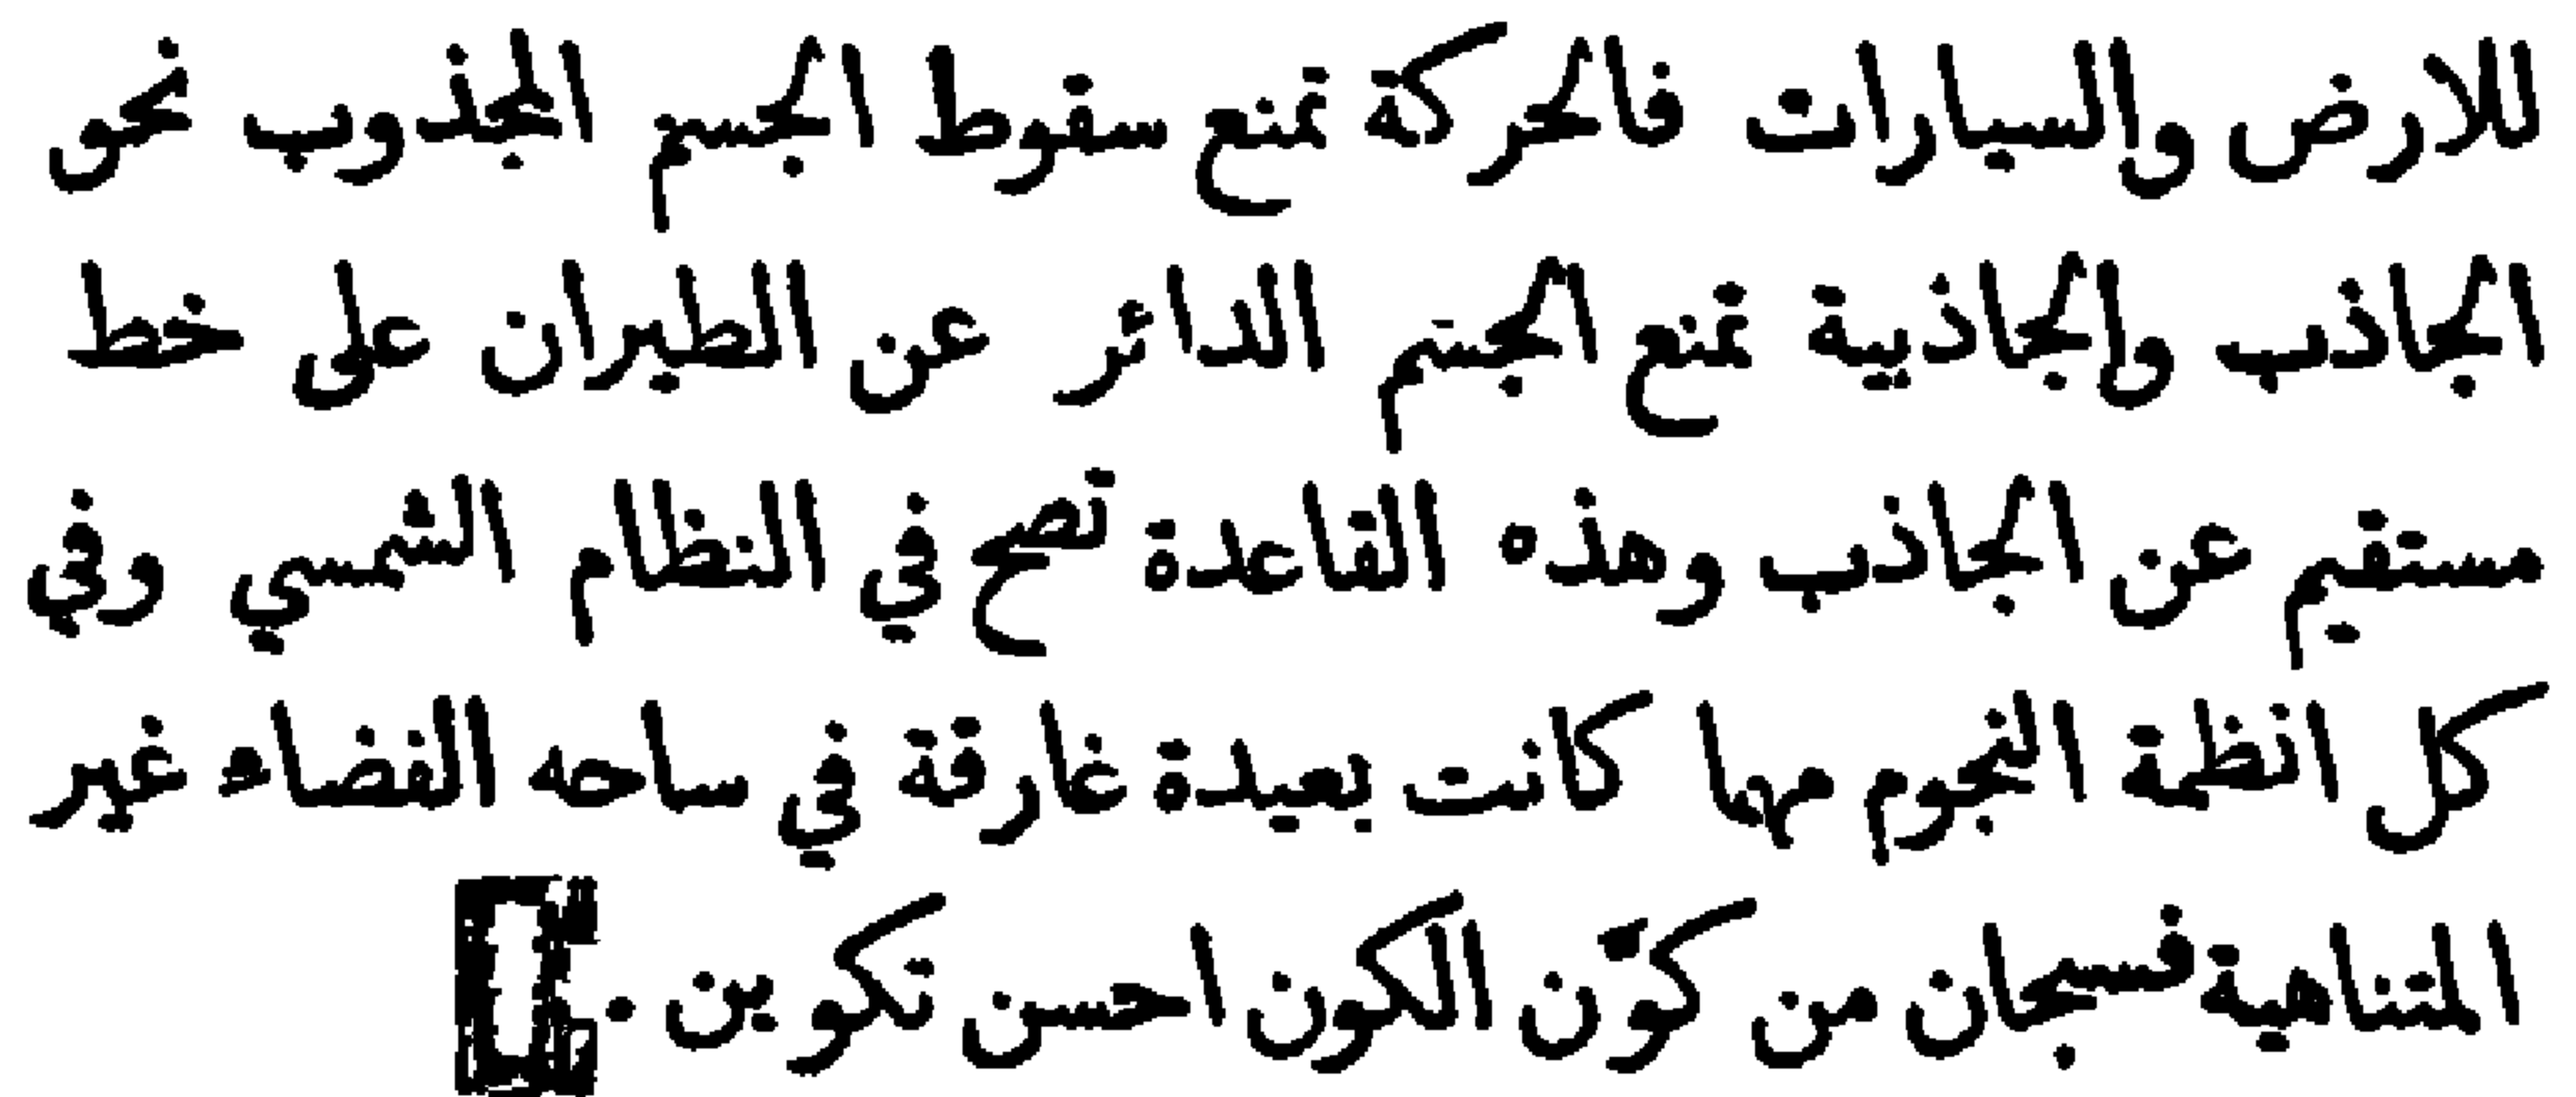 للارض والسيارات فالحركة تمنع سقوط الجسم المجذوب نحو
الجاذب والجاذبية تمنع الجسم الدائر عن الطيران على خط
مستقيم عن الجاذب وهذه القاعدة تصح في النظام الشمسي وفي
كل انظمة النجوم مهما كانت بعيدة غارقة في ساحه الفضاء غير
المتناهية فسبحان من كوّن الكون احسن تكوين .